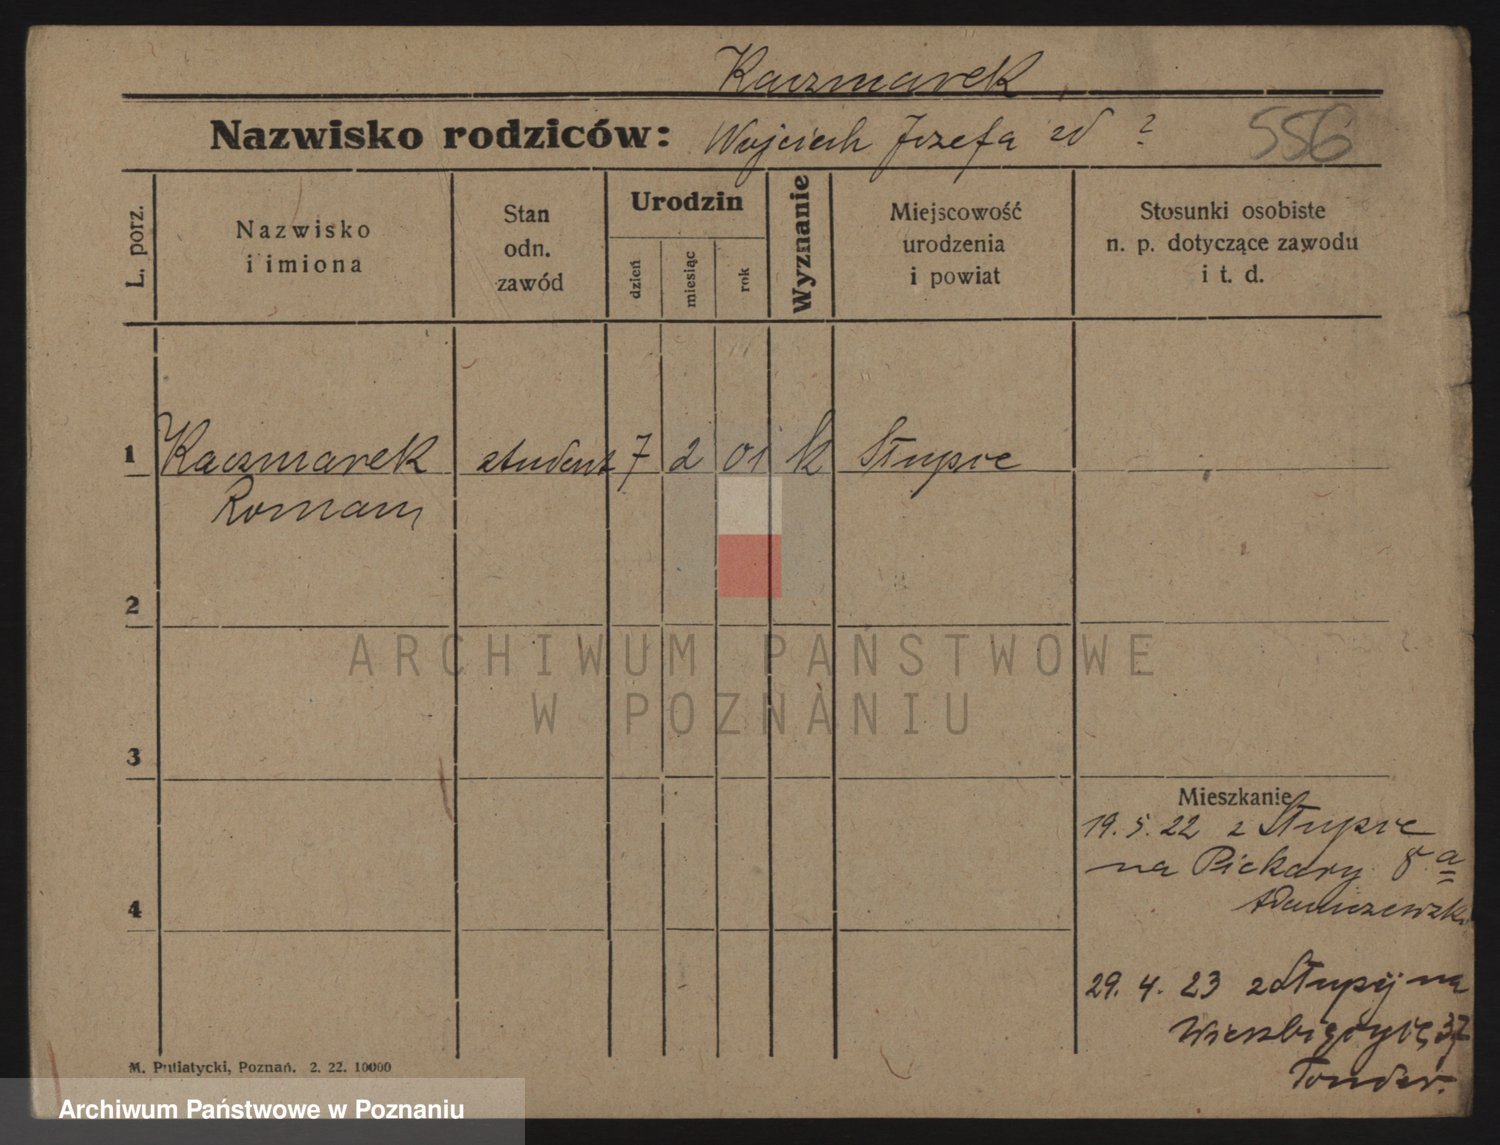 Kaczmarek
Nazwisko rodziców: Wojciech Józefa zd ? 556
L. porz.
Nazwisko
i imiona
Stan
odn.
zawód
Urodzin
dzień
miesiąc
rok
Wyznanie
Miejscowość
urodzenia
i powiat
Stosunki osobiste
n. p. dotyczące zawodu
i t. d.
1 Kaczmarek student 7 2 01 k Słupce
Roman
2
3
4
Mieszkanie
19. 5. 22 z Słupce
na Piekary 8 a
Adamczewski
29. 4. 23 z Słupij na
Wierzbięcice 37
Tonder.
M. Putiatycki, Poznań. 2. 22. 10000
ARCHIWUM PAŃSTWOWE
W POZNANIU
Archiwum Państwowe w Poznaniu